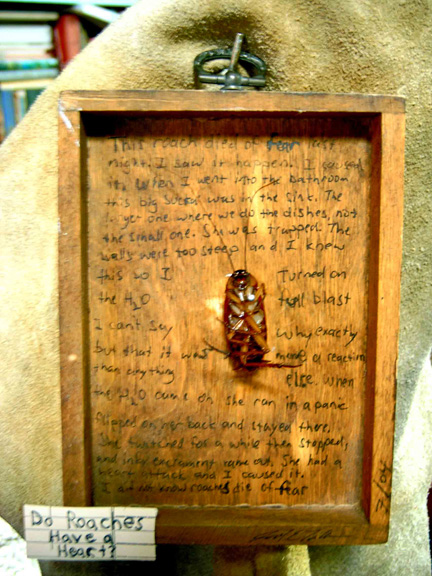 This roach died of fear last
night. I saw it happen. I caused
it. When I went into the bathroom
this big sucker was in the sink. The
larger one where we do the dishes, not
the small one. She was trapped. The
walls were too steep and I knew
this so I Turned on
the H2O full blast
I cant say why exactly
but that it was more a reaction
than anything else. when
the H2O came on she ran in a panic
flipped on her back and stayed there.
She twitched for a while then stopped,
and inky excrement came out. She had a
heart attack and I caused it.
I did not know roaches die of fear
7/04
Do Roaches
Have a
Heart?